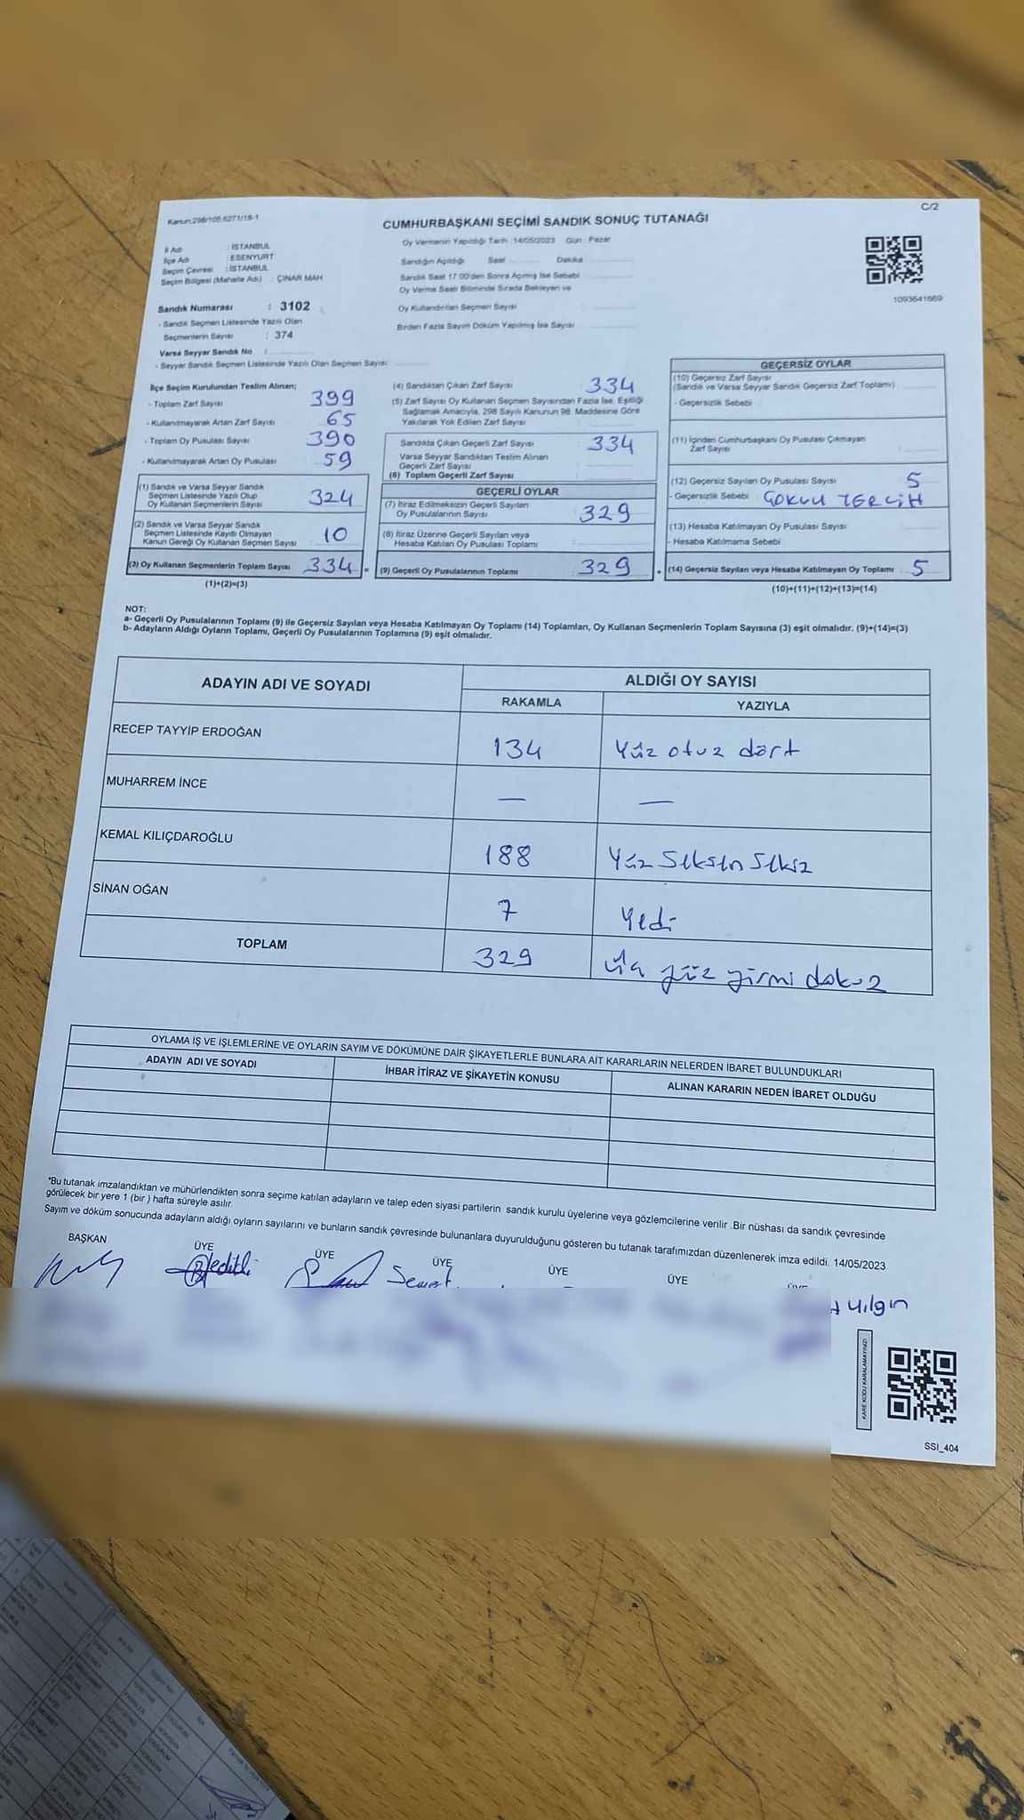 C/2
Kanun:298/105 6271/18-1
CUMHURBAŞKANI SEÇİMİ SANDIK SONUÇ TUTANAĞI
Oy Vermenin Yapıldığı Tarih :14/05/2023 Gün : Pazar
İl Adı : İSTANBUL
İlçe Adı : ESENYURT
Seçim Çevresi : İSTANBUL
Seçim Bölgesi (Mahalle Adı) : ÇINAR MAH
Sandığın Açıldığı Saat Dakika
Sandık Saat 17:00'den Sonra Açılmış İse Sebebi
Oy Verme Saati Bitiminde Sırada Bekleyen ve
Oy Kullandırılan Seçmen Sayısı
Birden Fazla Sayım Döküm Yapılmış İse Sayısı
1093641669
Sandık Numarası : 3102
- Sandık Seçmen Listesinde Yazılı Olan
Seçmenlerin Sayısı : 374
Varsa Seyyar Sandık No :
- Seyyar Sandık Seçmen Listesinde Yazılı Olan Seçmen Sayısı
İlçe Seçim Kurulundan Teslim Alınan;
- Toplam Zarf Sayısı 399
- Kullanılmayarak Artan Zarf Sayısı 65
- Toplam Oy Pusulası Sayısı 390
- Kullanılmayarak Artan Oy Pusulası 59
(1) Sandık ve Varsa Seyyar Sandık
Seçmen Listesinde Yazılı Olup
Oy Kullanan Seçmenlerin Sayısı 324
(2) Sandık ve Varsa Seyyar Sandık
Seçmen Listesinde Kayıtlı Olmayan
Kanun Gereği Oy Kullanan Seçmen Sayısı 10
(3) Oy Kullanan Seçmenlerin Toplam Sayısı 334
(1)+(2)=(3)
(4) Sandıktan Çıkan Zarf Sayısı 334
(5) Zarf Sayısı Oy Kullanan Seçmen Sayısından Fazla İse, Eşitliği
Sağlamak Amacıyla, 298 Sayılı Kanunun 98. Maddesine Göre
Yakılarak Yok Edilen Zarf Sayısı
Sandıkta Çıkan Geçerli Zarf Sayısı 334
Varsa Seyyar Sandıktan Teslim Alınan
Geçerli Zarf Sayısı
(6) Toplam Geçerli Zarf Sayısı
GEÇERLİ OYLAR
(7) İtiraz Edilmeksizin Geçerli Sayılan
Oy Pusulalarının Sayısı 329
(8) İtiraz Üzerine Geçerli Sayılan veya
Hesaba Katılan Oy Pusulası Toplamı
(9) Geçerli Oy Pusulalarının Toplamı 329
GEÇERSİZ OYLAR
(10) Geçersiz Zarf Sayısı
(Sandık ve Varsa Seyyar Sandık Geçersiz Zarf Toplamı)
- Geçersizlik Sebebi
(11) İçinden Cumhurbaşkanı Oy Pusulası Çıkmayan
Zarf Sayısı
(12) Geçersiz Sayılan Oy Pusulası Sayısı 5
- Geçersizlik Sebebi ÇOKLU TERCİH
(13) Hesaba Katılmayan Oy Pusulası Sayısı
- Hesaba Katılmama Sebebi
(14) Geçersiz Sayılan veya Hesaba Katılmayan Oy Toplamı 5
(10)+(11)+(12)+(13)=(14)
NOT:
a- Geçerli Oy Pusulalarının Toplamı (9) ile Geçersiz Sayılan veya Hesaba Katılmayan Oy Toplamı (14) Toplamları, Oy Kullanan Seçmenlerin Toplam Sayısına (3) eşit olmalıdır. (9)+(14)=(3)
b- Adayların Aldığı Oyların Toplamı, Geçerli Oy Pusulalarının Toplamına (9) eşit olmalıdır.
ADAYIN ADI VE SOYADI
ALDIĞI OY SAYISI
RAKAMLA YAZIYLA
RECEP TAYYİP ERDOĞAN 134 Yüz otuz dört
MUHARREM İNCE — —
KEMAL KILIÇDAROĞLU 188 Yüz Seksen Sekiz
SİNAN OĞAN 7 Yedi
TOPLAM 329 üç yüz yirmi dokuz
OYLAMA İŞ VE İŞLEMLERİNE VE OYLARIN SAYIM VE DÖKÜMÜNE DAİR ŞİKAYETLERLE BUNLARA AİT KARARLARIN NELERDEN İBARET BULUNDUKLARI
ADAYIN ADI VE SOYADI
İHBAR İTİRAZ VE ŞİKAYETİN KONUSU
ALINAN KARARIN NEDEN İBARET OLDUĞU
"Bu tutanak imzalandıktan ve mühürlendikten sonra seçime katılan adayların ve talep eden siyasi partilerin sandık kurulu üyelerine veya gözlemcilerine verilir .Bir nüshası da sandık çevresinde
görülecek bir yere 1 (bir ) hafta süreyle asılır.
Sayım ve döküm sonucunda adayların aldığı oyların sayılarını ve bunların sandık çevresinde bulunanlara duyurulduğunu gösteren bu tutanak tarafımızdan düzenlenerek imza edildi. 14/05/2023
BAŞKAN ÜYE ÜYE ÜYE ÜYE ÜYE
Yılgın
KARE KODU KARALAMAYINIZ!
SSI_404